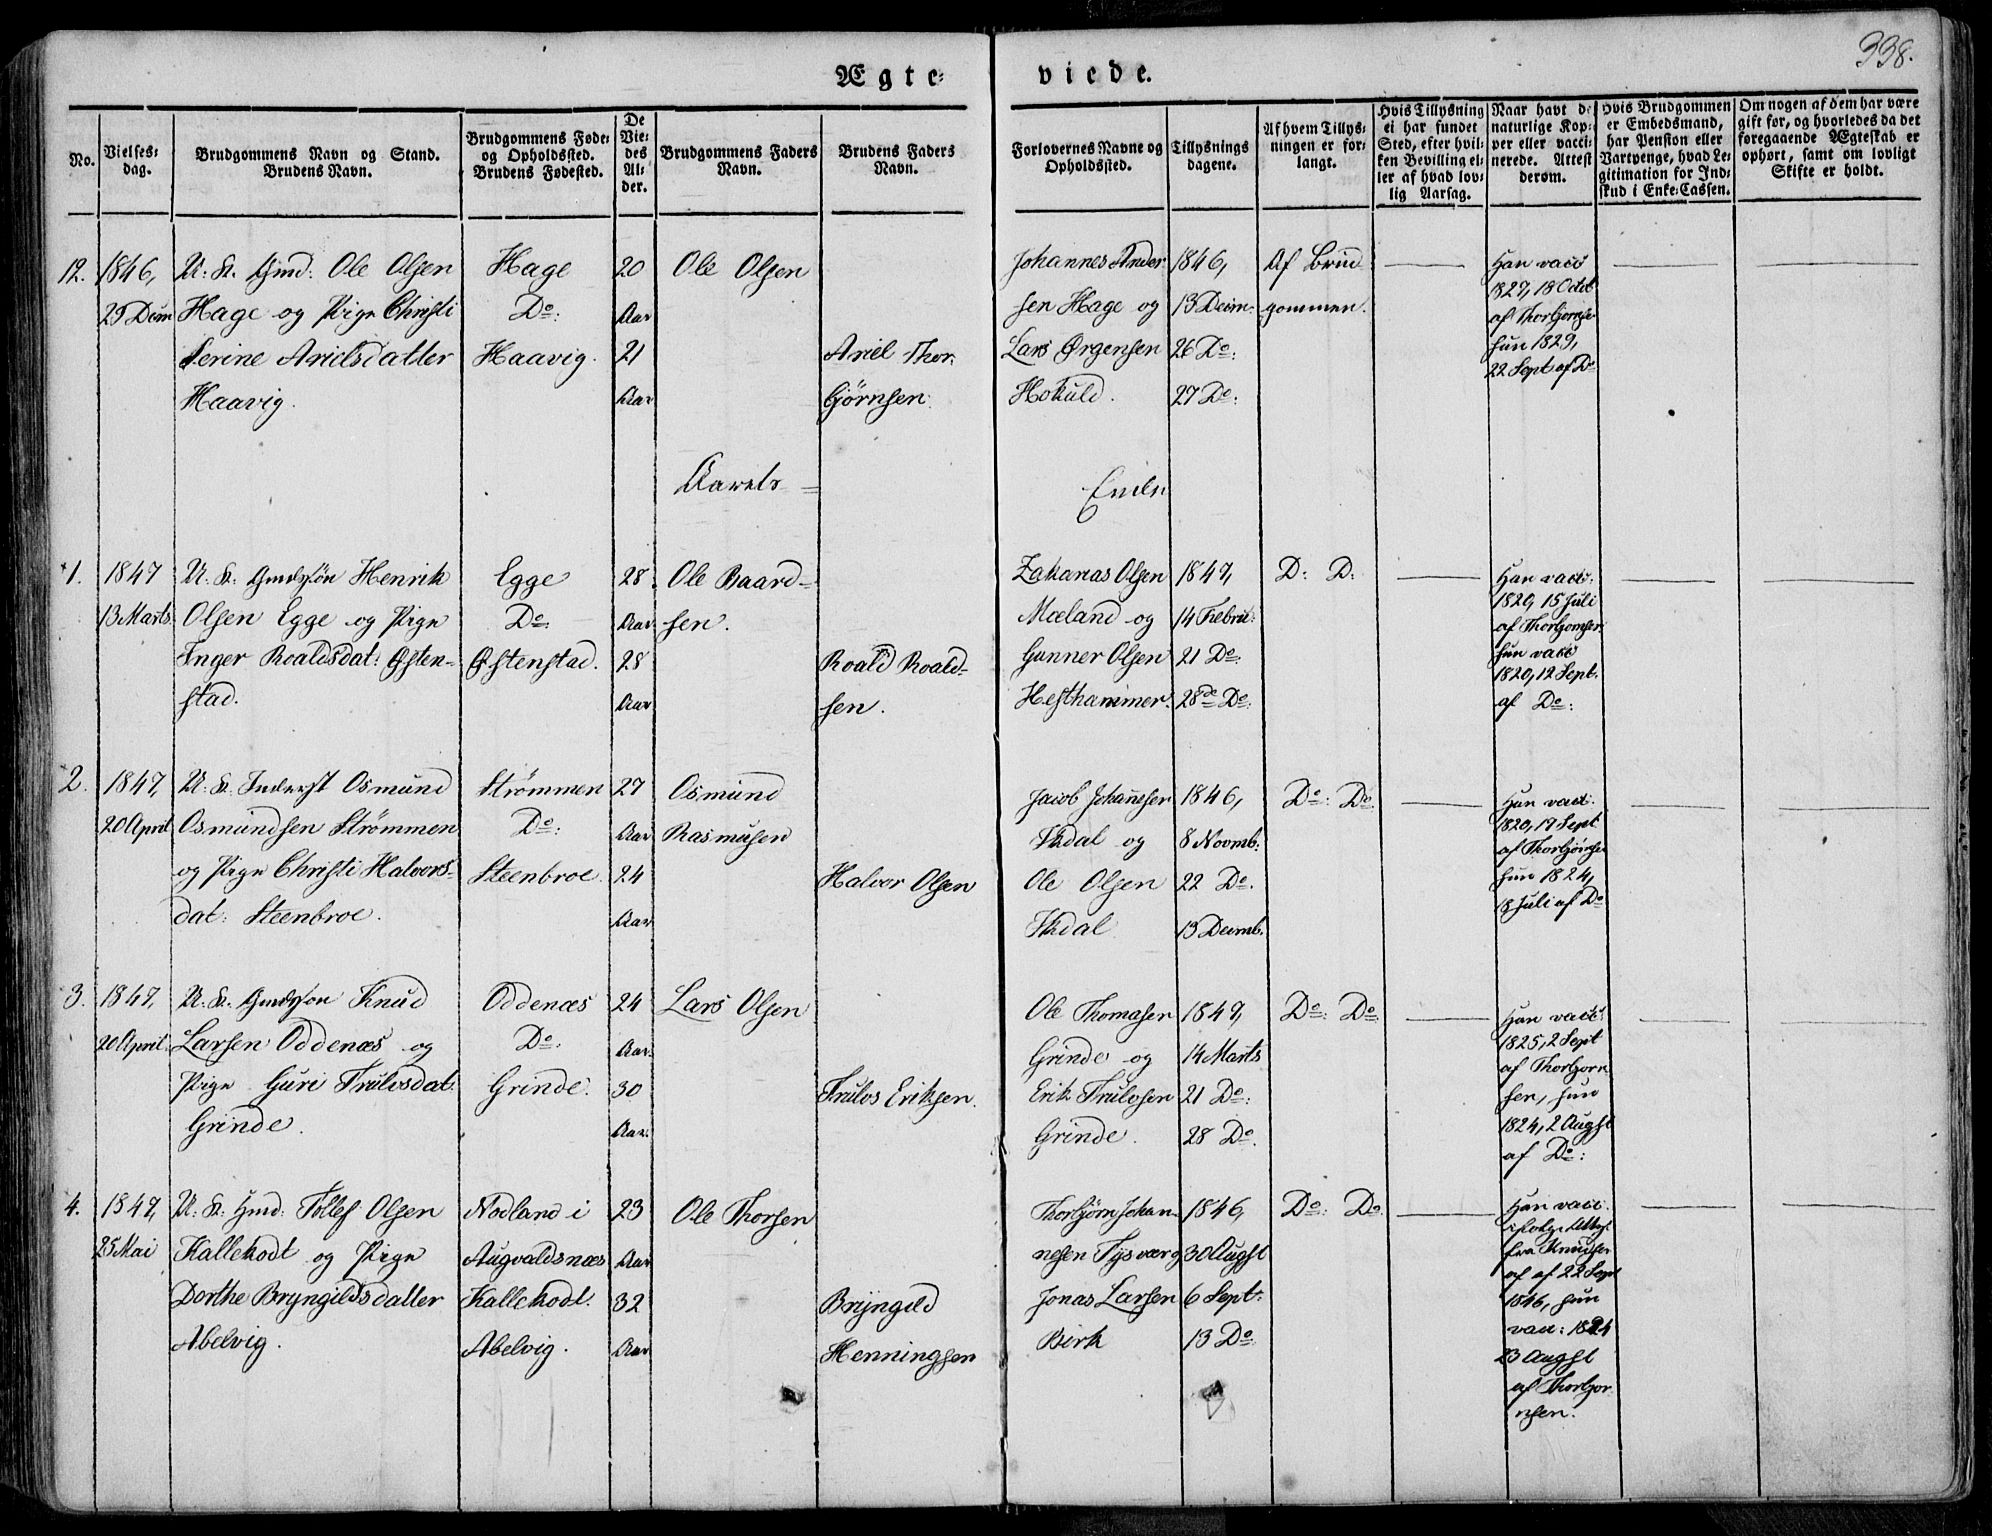 338.
Ægte-
viede.
No.
Vielses-
dag.
Brudgommens Navn og Stand.
Brudens Navn.
Brudgommens Føde-
og Opholdssted.
Brudens Fødested.
De
Vie-
des
Al-
der.
Brudgommens Faders
Navn.
Brudens Faders
Navn.
Forlovernes Navne og
Opholdssted.
Tillysnings
dagene.
Af hvem Tillys-
ningen er for-
langt.
Hvis Tillysning
ei har fundet
Sted, efter hvil-
ken Bevilling el-
ler af hvad lov-
lig Aarsag.
Naar havt de
naturlige Kop-
per eller vacci-
nerede. Attest
derom.
Hvis Brudgommen
er Embedsmand,
har Pension eller
Vartpenge, hvad Le-
gitimation for Ind-
skud i Enke-Cassen.
Om nogen af dem har være
gift før, og hvorledes da det
foregaaende Ægteskab er
ophørt, samt om lovligt
Skifte er holdt.
12.
1846,
29 Decm
U: K. Gmd: Ole Olsen
Hage og Pige Christi
Serine Arielsdatter
Haavig.
Hage
Do:
Haavig.
20
Aar
21
Aar
Ole Olsen
Ariel Thor-
bjørnsen.
Johannes Ander
sen Hage og
Lars Ørgensen
Hokuld.
1846,
13 Decm.
26 Do:
27 Do:
Af Brud
gommen.
Han vacc
1827, 18 Octob
af Thorbjørnse
hun 1829,
22 Sept af Do
Aarets =
Ende
1.
1847
13 Marts.
U. K: Gmdssøn Henrik
Olsen Egge og Pige
Inger Roaldsdat: Østen-
stad.
Egge
Do
Østenstad.
28.
Aar
28
Aar
Ole Baard-
sen.
Roald Roald-
sen.
Zakarias Olsen
Mæland og
Gunner Olsen
Hesthammer.
1847,
14 Febru:
21 Do.
28de Do.
D: D:
Han vacc:
1820, 15 Juli
af Thorbjornsen
hun vacc
1820, 12 Sept.
af Do:
2.
1847,
20 April
U. K. Inderst Osmund
Osmundsen Strømmen
og Pige Christi Halvors-
dat: Steenbroe.
Strømmen
Do:
Steenbroe.
27
Aar
24
Aar
Osmund
Rasmusen
Halvor Olsen
Jacob Johannesen
og
Ole Olsen
1846,
8 Novmb:
22 Do.
13 Decmb.
Do: Do
Han vacc:
1820, 19 Sept
af Thorbjørnse
hun 1824,
18 Juli af Do
3.
1847,
20 April.
U. K. Gmdsson Knud
Larsen Oddenæs og
Pige Guri Trulvsdat:
Grinde.
Oddenæs
Do:
Grinde.
24
Aar.
30
Aar.
Lars Olsen
Trulvs Eriksen.
Ole Thomasen
Grinde og
Erik Trulvsen
Grinde.
1847,
14 Marts
21 Do:
28 Do.
Do: Do
Han vacc:
1825, 2 Sept
af Thorbjorn
sen, hun
1824, 2 Augst
af Do:
4.
1847,
25 Mai
U. K. Gmd: Tollef Olsen
Kallekodt og Pige
Dorthe Bryngildsdatter
Abelvig.
Nodland i
Augvaldsnæs
Kallekodt.
Abelvig.
23
Aar
32
Aar
Ole Thorsen
Bryngild
Henningsen
Thorbjørn Johan-
nesen Tysvær og
Jonas Larsen
Birk
1846,
30 Augst
6 Sept:
13 Do
Do: Do
Han vacc:
ifølge Attest
fra Knudsen
af af 22 Sept
1846, hun
vacc: 1824
23 Augst
af Thorbjor
nsen.